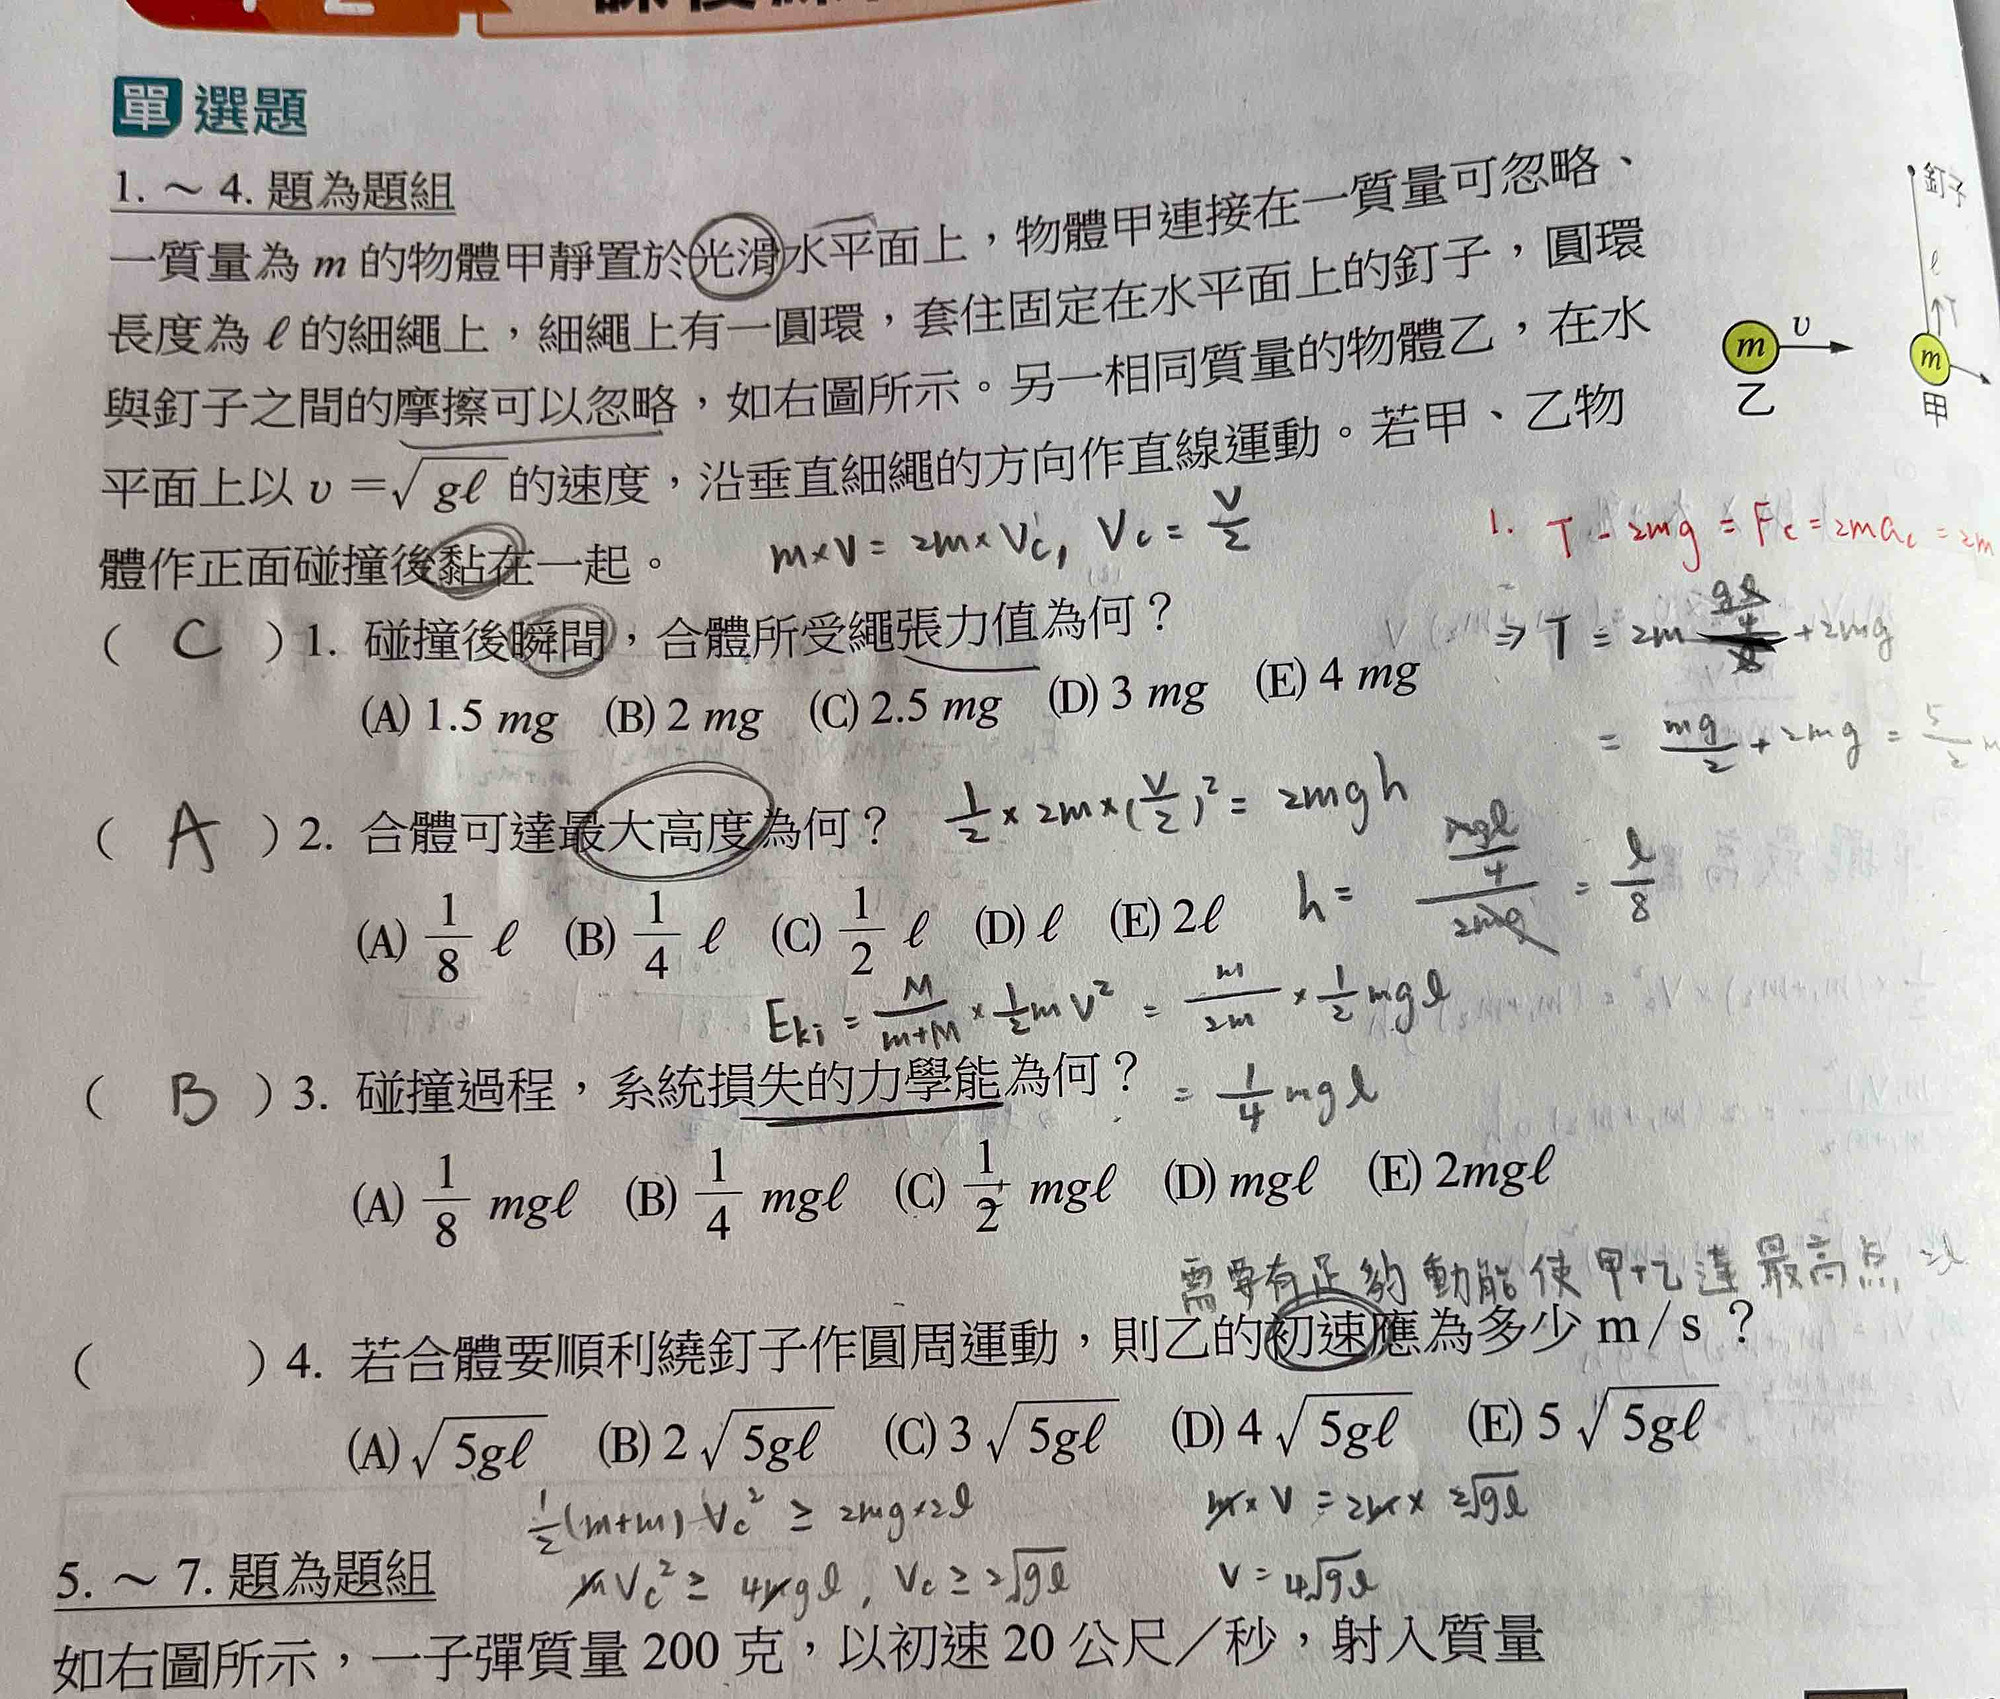 單選題
1. ～ 4. 題為題組
一質量為 m 的物體甲靜置於光滑水平面上，物體甲連接在一質量可忽略、
長度為 ℓ 的細繩上，細繩上有一圓環，套住固定在水平面上的釘子，圓環
與釘子之間的摩擦可以忽略，如右圖所示。另一相同質量的物體乙，在水
平面上以 υ ＝√gℓ 的速度，沿垂直細繩的方向作直線運動。若甲、乙物
體作正面碰撞後黏在一起。
釘子
ℓ
↑T
m υ
乙
m
甲
m×V = 2m×Vc, Vc = V/2
1. T - 2mg = Fc = 2mac = 2m
⇒ T = 2m gℓ/4 + 2mg
= mg/2 + 2mg = 5/2 m
( C ) 1. 碰撞後瞬間，合體所受繩張力值為何？
(A) 1.5 mg (B) 2 mg (C) 2.5 mg (D) 3 mg (E) 4 mg
( A ) 2. 合體可達最大高度為何？ 1/2 × 2m × (V/2)² = 2mgh
(A) 1/8 ℓ (B) 1/4 ℓ (C) 1/2 ℓ (D) ℓ (E) 2ℓ
h = mgℓ/4 / 2mg = ℓ/8
Eki = M/m+M × 1/2 mV² = m/2m × 1/2 mgℓ
( B ) 3. 碰撞過程，系統損失的力學能為何？ = 1/4 mgℓ
(A) 1/8 mgℓ (B) 1/4 mgℓ (C) 1/2 mgℓ (D) mgℓ (E) 2mgℓ
需要有足夠動能使甲+乙達最高点 2ℓ
( ) 4. 若合體要順利繞釘子作圓周運動，則乙的初速應為多少 m/s？
(A) √5gℓ (B) 2√5gℓ (C) 3√5gℓ (D) 4√5gℓ (E) 5√5gℓ
1/2(m+m) Vc² ≥ 2mg×2ℓ
m×V = 2m× 2√gℓ
mVc² ≥ 4mgℓ, Vc ≥ 2√gℓ
V = 4√gℓ
5. ～ 7. 題為題組
如右圖所示，一子彈質量 200 克，以初速 20 公尺／秒，射入質量